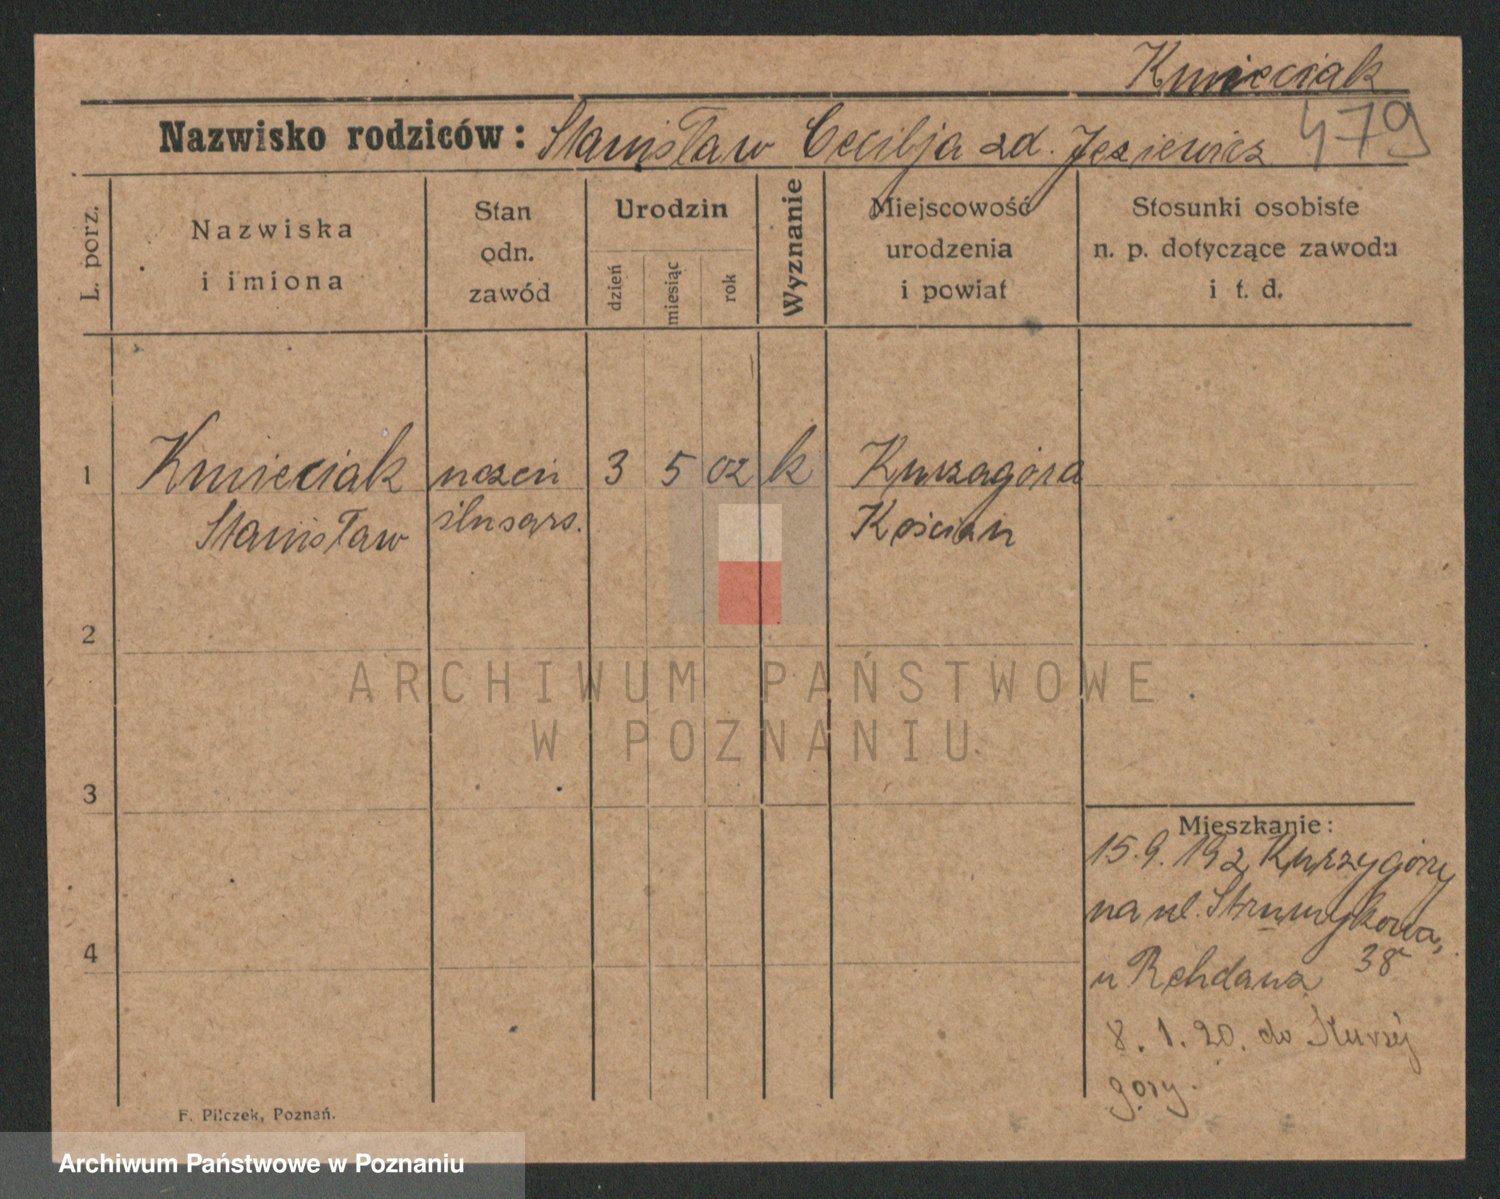 Kmieciak
Nazwisko rodziców: Stanisław Cecilja zd. Jeziewicz 479
L. porz.
Nazwiska
i imiona
Stan
odn.
zawód
Urodzin
dzień
miesiąc
rok
Wyznanie
Miejscowość
urodzenia
i powiat
Stosunki osobiste
n. p. dotyczące zawodu
i t. d.
1 Kmieciak uczeń 3 5 02 k Kurzagóra
Stanisław ślusars. Kościan
2
3
4
ARCHIWUM PAŃSTWOWE
W POZNANIU
Mieszkanie:
15.9.19 z Kurzygóry
na ul. Strumykowa,
u Rehdanz 38
8. 1. 20. do Kurzej
góry.
F. Pilczek, Poznań.
Archiwum Państwowe w Poznaniu